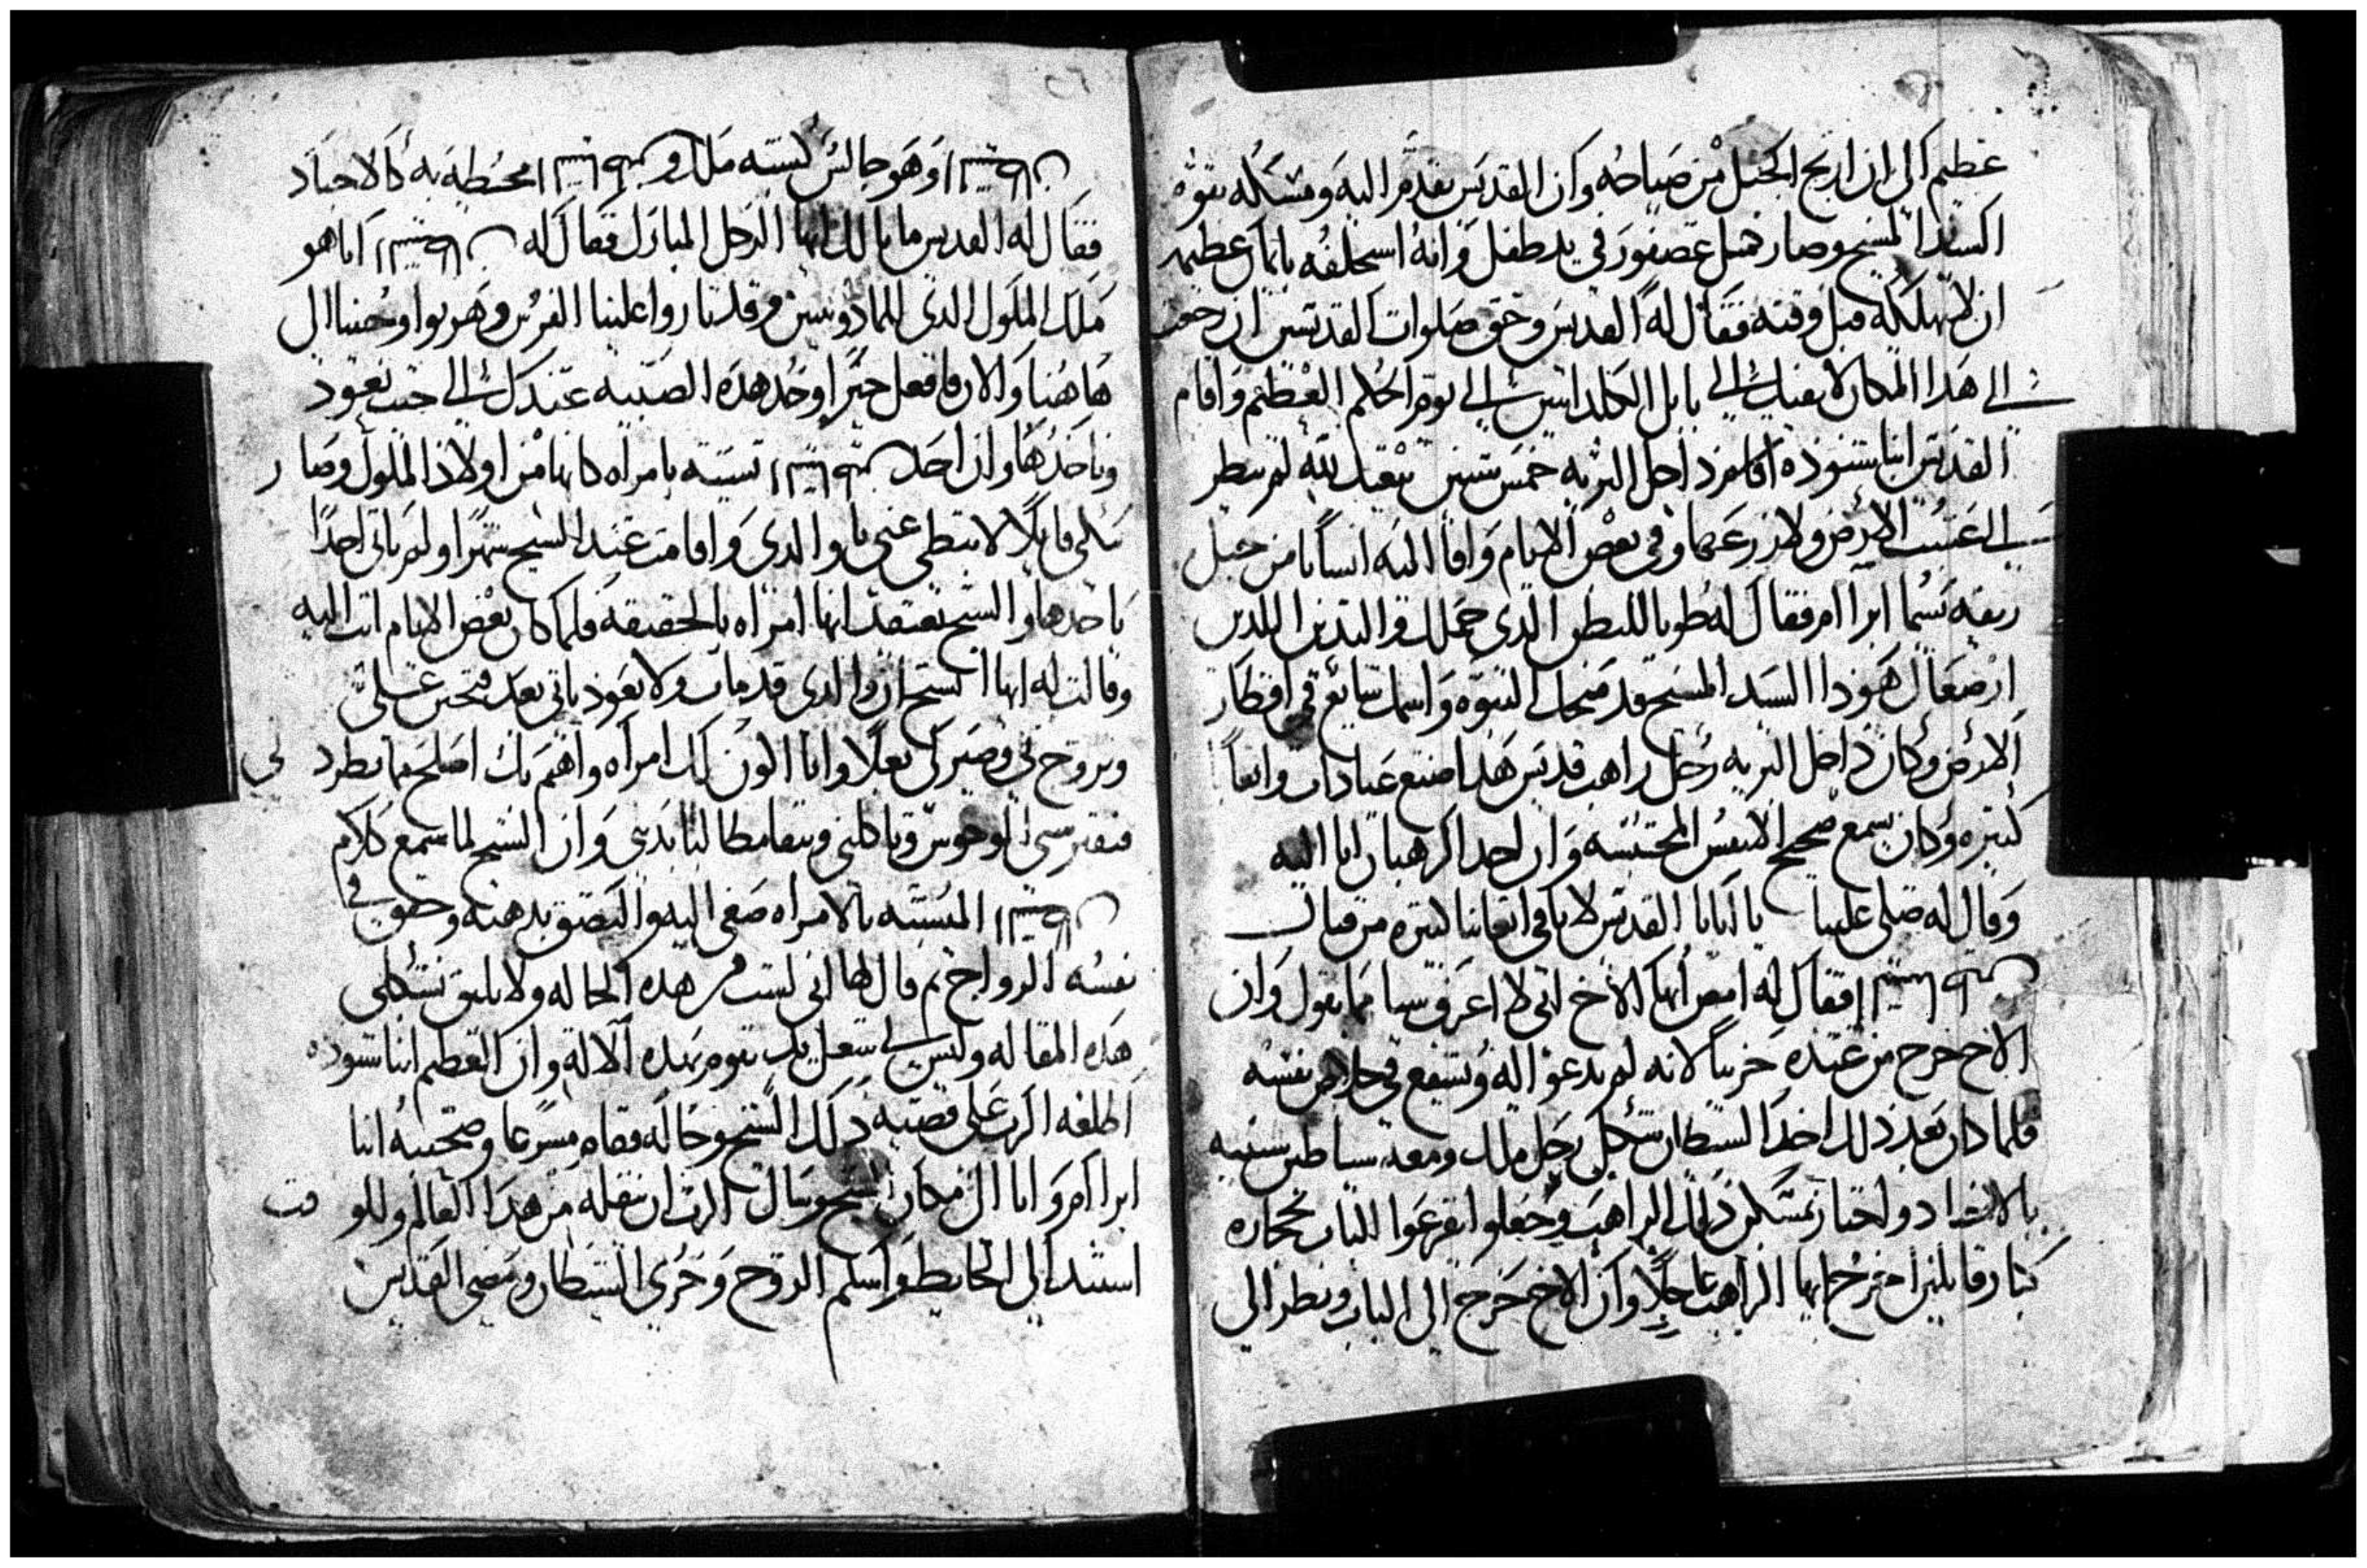 عظيم الى ان ارتج الجبل من صياحه وان القديس تقدم اليه ومسكه بقوه
السيد المسيح وصار مثل عصفور في يد طفل وانه استحلفه بايمان عظيمه
ان لا يهلكه قبل وقته فقال له القديس وحق صلوات القديسين ان رجعت
الى هذا المكان لا نفيتك الى بابل الكلدانيين الى يوم الحكم العظيم واقام
القديس انبا شنوده داخل البريه خمس سنين بثقل لم ينظر
الى عشب الارض ولا زرعها وفي بعض الايام وافا اليه انسانا من جبل
يسما ابراام فقال له طوبا للبطن الذي حملك والثديين اللذين
ارضعاك هوذا السيد المسيح قد منحك النبوه واسمك شائع في اقطار
الارض وكان داخل البريه رجل راهب قديس هذا صنع عبادات واتعاباً
كثيره وكان يسمع ضجيج الانفس المحتبسه وان احد الرهبان اتا اليه
وقال له صلي علينا يا ابانا القديس لان في اتعابنا كثيره من قبال
فقال له امض ايها الاخ اني لا اعرف شيا مما تقول وان
الاخ خرج من عنده حزينا لانه لم يدعوا له ويشفع في خلاص نفسه
فلما كان بعد ذلك اخذ الشيطان شكل رجل ملك ومعه شياطين شبيه
بالاجناد واحتاز بمسكن ذلك الراهب وجعلوا يقرعوا الباب بحجاره
كبار قايلين اخرج ايها الراهب عاجلاً وان الاخ خرج الى الباب ونظر الى
وهو جالس كشبه ملك و محيطيه به كالاجناد
فقال له القديس ما بالك ايها الرجل المبارك فقال له انا هو
ملك الملوك الذي وقد ثاروا علينا الفرس وهربوا وجينا الى
هاهنا والان فافعل خيرا وخذ هذه الصبيه عندك الى حيث نعود
وناخذها وان احد تشبه بامراه كانها من اولاد الملوك وصار
يبكي قايلا لا تبطي عني يا والدي واقامت عند الشيخ شهرا ولم ياتي احدا
ياخدها والشيخ يعتقد انها امراه بالحقيقه فلما كان بعض الايام اتت اليه
وقالت له ايها الشيخ ان والدي قد مات ولا يعود ياتي بعد فتحنن علي
وتزوج بي وصير لي بعلا وانا اكون لك امراه وافهم بانك اصلح مما تطردني
فتفترسني الوحوش وتاكلني وتبقا مطالبا بدمي وان الشيخ لما سمع كلام
المشبه بالامراه صغى اليه والتصق بذهنه وحقق في
نفسه الزواج ثم قال لها اني لست من هذه الحاله ولا يليق بشكلي
هذه المقاله وليس لي شغل يد يقوم بهذه الاله وان العظيم انبا شنوده
اطلعه الرب على قضيه ذلك الشيخ وحاله فقام مسرعا وصحبته انبا
ابراام واتا الى مكان الشيخ وسال الرب ان ينقله من هذا العالم وللوقت
استند الى الحايط واسلم الروح وخزي الشيطان ومضى القديس